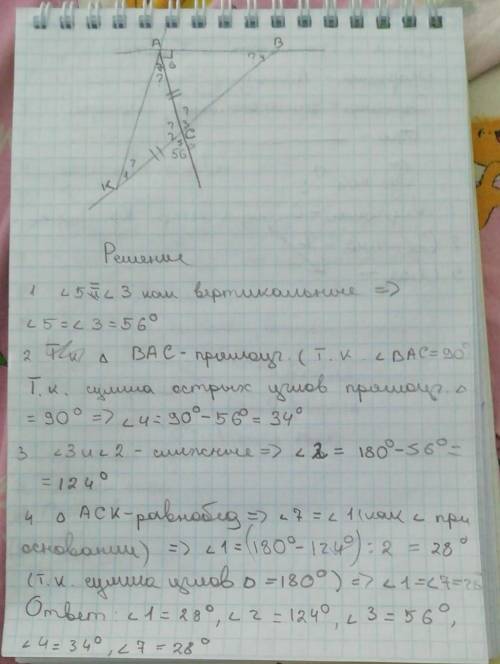 A B
? 4
7 6
?
?
3
?
2 C
5
56
K 1 ?
Решение
1 ∠5 и ∠3 как вертикальные =>
∠5 = ∠3 = 56°
2 △ BAC - прямоуг. (т.к. ∠BAC = 90°
Т.к. сумма острых углов прямоуг. △
= 90° => ∠4 = 90° - 56° = 34°
3 ∠3 и ∠2 - смежные => ∠2 = 180° - 56° =
= 124°
4. △ ACK - равнобед => ∠7 = ∠1 (как ∠ при
основании) => ∠1 = (180° - 124°) : 2 = 28°
(т.к. сумма углов △ = 180°) => ∠1 = ∠7 = 28
Ответ: ∠1 = 28°, ∠2 = 124°, ∠3 = 56°,
∠4 = 34°, ∠7 = 28°